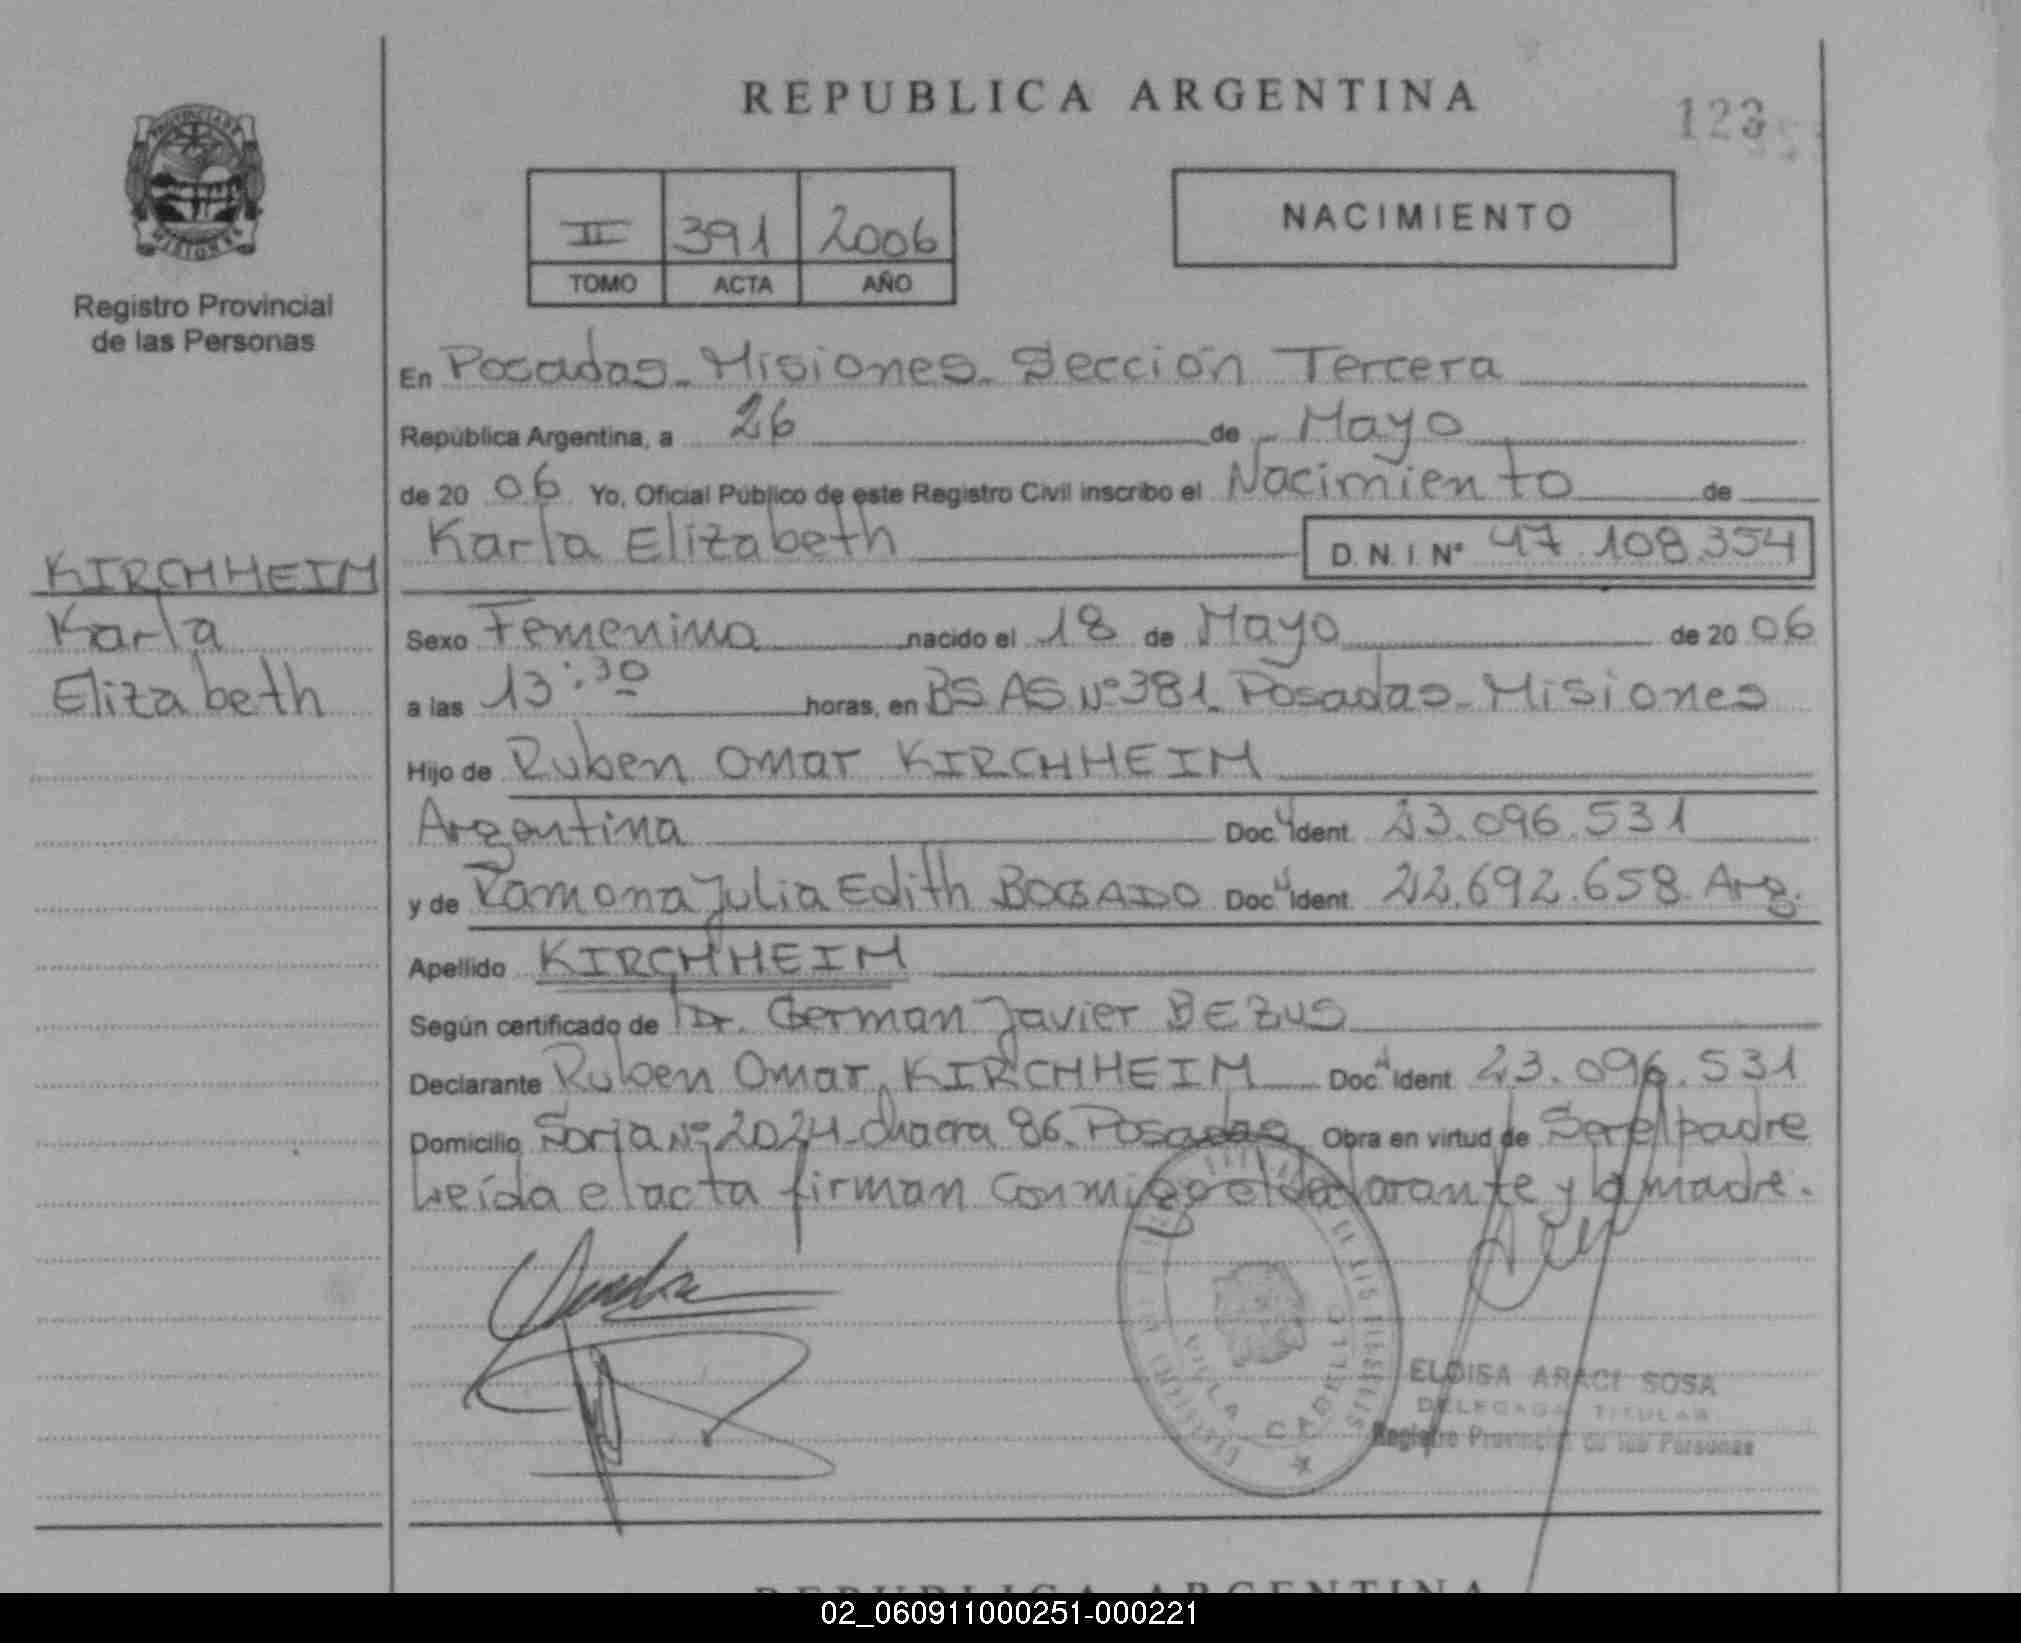 REPUBLICA ARGENTINA
123
PROVINCIA DE
MISIONES
Registro Provincial
de las Personas
II 391 2006
TOMO ACTA AÑO
NACIMIENTO
En Posadas - Misiones - Sección Tercera
República Argentina, a 26 de Mayo
de 20 06 Yo, Oficial Público de este Registro Civil inscribo el Nacimiento de
Karla Elizabeth D. N. I. N° 47.108.354
KIRCHHEIM
Karla
Elizabeth
Sexo Femenino nacido el 18 de Mayo de 20 06
a las 13:30 horas, en BS AS N° 381 - Posadas - Misiones
Hijo de Ruben Omar KIRCHHEIM
Argentina Doc. Ident. 23.096.531
y de Ramona Julia Edith BOGADO Doc. Ident. 22.692.658 Arg.
Apellido KIRCHHEIM
Según certificado de Dr. German Javier BEZUS
Declarante Ruben Omar KIRCHHEIM Doc. Ident. 23.096.531
Domicilio Soria N° 2024 - chacra 86 - Posadas Obra en virtud de Ser el padre
Leída el acta firman conmigo el declarante y la madre.
VILLA CABELLO
ELOISA ARACI SOSA
DELEGADA TITULAR
Registro Provincial de las Personas
REPUBLICA ARGENTINA
02_060911000251-000221